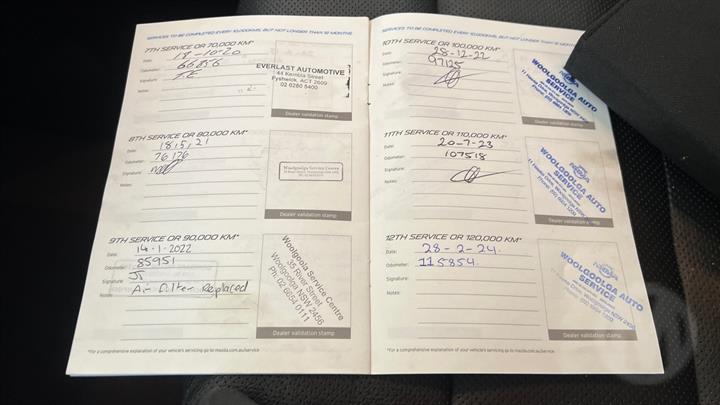 SERVICES TO BE COMPLETED EVERY 10,000KMS, BUT NOT LONGER THAN 12 MONTHS.
7TH SERVICE OR 70,000 KM*
Date: 18-10-20
Odometer: 66856
Signature: J.E
Notes:
EVERLAST AUTOMOTIVE
44 Kembla Street
Fyshwick, ACT 2609
02 6280 5400
Dealer validation stamp
8TH SERVICE OR 80,000 KM*
Date: 18,5,21
Odometer: 76176
Signature:
Notes:
Woolgoolga Service Centre
Dealer validation stamp
9TH SERVICE OR 90,000 KM*
Date: 14-1-2022
Odometer: 85951
Signature:
Notes: Air filter replaced
Woolgoola Service Centre
35 River Street
Woolgoolga NSW 2456
Ph: 02 6654 0111
Dealer validation stamp
*For a comprehensive explanation of your vehicle's servicing go to mazda.com.au/service
SERVICES TO BE COMPLETED EVERY 10,000KMS, BUT NOT LONGER THAN 12 MONTHS
10TH SERVICE OR 100,000 KM*
Date: 28-12-22
Odometer: 97125
Signature:
Notes:
WOOLGOOLGA AUTO
SERVICE
Dealer validation stamp
11TH SERVICE OR 110,000 KM*
Date: 20-7-23
Odometer: 107518
Signature:
Notes:
WOOLGOOLGA AUTO
SERVICE
Dealer validation
12TH SERVICE OR 120,000 KM*
Date: 28-2-24
Odometer: 115854
Signature:
Notes:
WOOLGOOLGA AUTO
SERVICE
Dealer validation stamp
*For a comprehensive explanation of your vehicle's servicing go to mazda.com.au/service